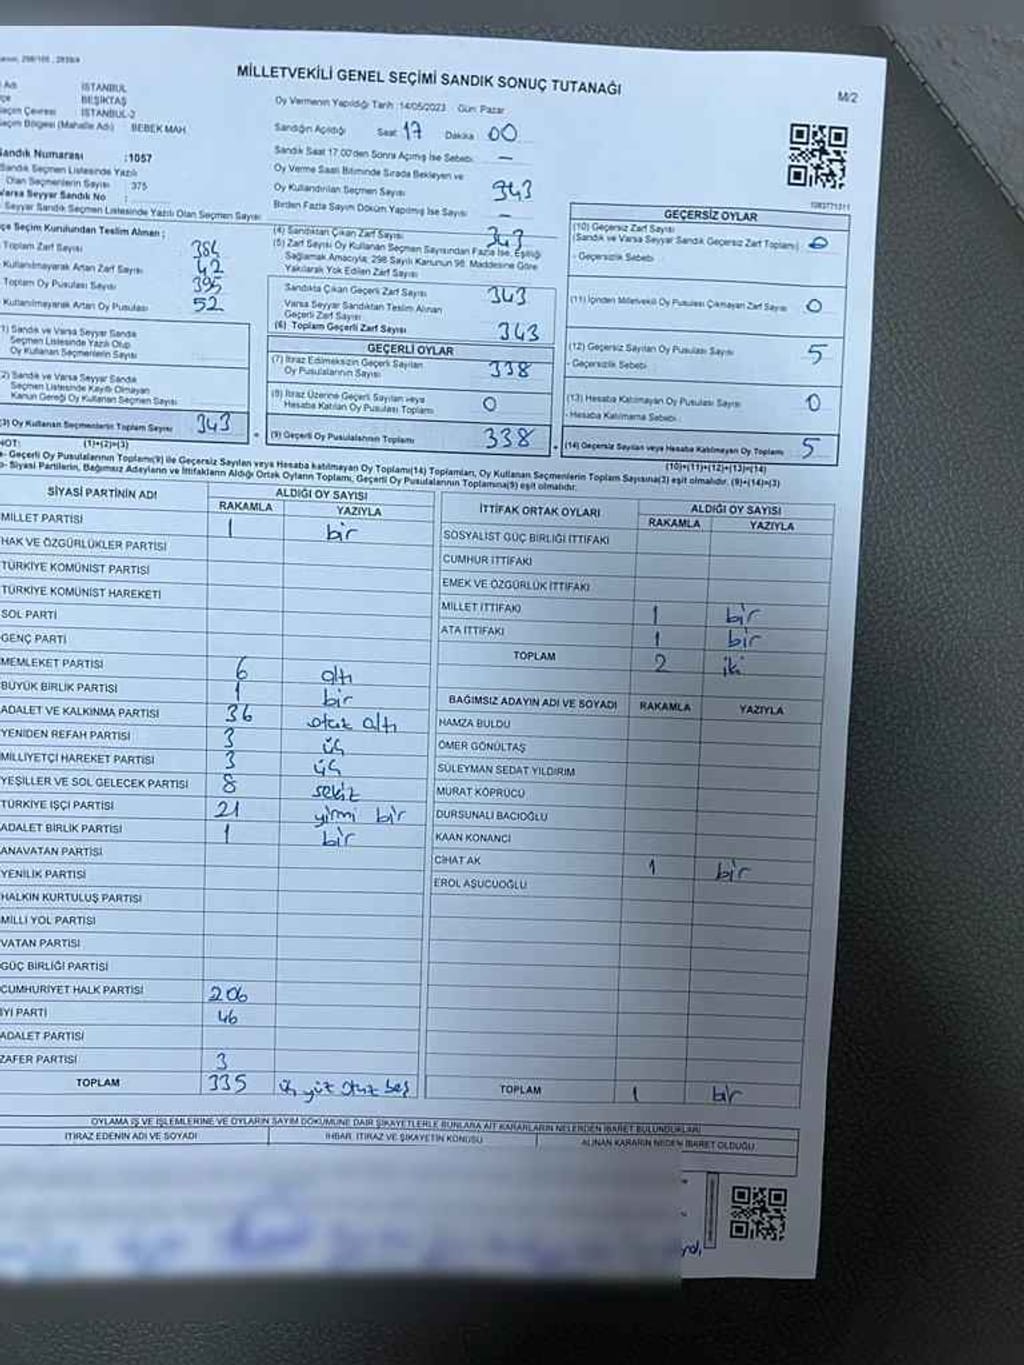 MİLLETVEKİLİ GENEL SEÇİMİ SANDIK SONUÇ TUTANAĞI
M/2
Adı İSTANBUL
BEŞİKTAŞ
Seçim Çevresi İSTANBUL-2
Seçim Bölgesi (Mahalle Adı) BEBEK MAH
Sandık Numarası :1057
Sandık Seçmen Listesinde Yazılı
Olan Seçmenlerin Sayısı : 375
Varsa Seyyar Sandık No :
Seyyar Sandık Seçmen Listesinde Yazılı Olan Seçmen Sayısı
İlçe Seçim Kurulundan Teslim Alınan ;
Toplam Zarf Sayısı 384
Kullanılmayarak Artan Zarf Sayısı 42
Toplam Oy Pusulası Sayısı 395
Kullanılmayarak Artan Oy Pusulası 52
(1) Sandık ve Varsa Seyyar Sandık
Seçmen Listesinde Yazılı Olup
Oy Kullanan Seçmenlerin Sayısı
(2) Sandık ve Varsa Seyyar Sandık
Seçmen Listesinde Kayıtlı Olmayan
Kanun Gereği Oy Kullanan Seçmen Sayısı
(3) Oy Kullanan Seçmenlerin Toplam Sayısı 343
(1)+(2)=(3)
Oy Vermenin Yapıldığı Tarih :14/05/2023 Gün: Pazar
Sandığın Açıldığı Saat 17 Dakika 00
Sandık Saat 17.00'den Sonra Açmış İse Sebebi: —
Oy Verme Saati Bitiminde Sırada Bekleyen ve
Oy Kullandırılan Seçmen Sayısı 343
Birden Fazla Sayım Döküm Yapılmış İse Sayısı —
(4) Sandıktan Çıkan Zarf Sayısı 343
(5) Zarf Sayısı Oy Kullanan Seçmen Sayısından Fazla İse, Eşitliği
Sağlamak Amacıyla; 298 Sayılı Kanunun 98. Maddesine Göre
Yakılarak Yok Edilen Zarf Sayısı
Sandıkta Çıkan Geçerli Zarf Sayısı 343
Varsa Seyyar Sandıktan Teslim Alınan
Geçerli Zarf Sayısı
(6) Toplam Geçerli Zarf Sayısı 343
GEÇERLİ OYLAR
(7) İtiraz Edilmeksizin Geçerli Sayılan
Oy Pusulalarının Sayısı 338
(8) İtiraz Üzerine Geçerli Sayılan veya
Hesaba Katılan Oy Pusulası Toplamı 0
(9) Geçerli Oy Pusulalarının Toplamı 338
GEÇERSİZ OYLAR
(10) Geçersiz Zarf Sayısı
(Sandık ve Varsa Seyyar Sandık Geçersiz Zarf Toplamı) 0
- Geçersizlik Sebebi
(11) İçinden Milletvekili Oy Pusulası Çıkmayan Zarf Sayısı 0
(12) Geçersiz Sayılan Oy Pusulası Sayısı 5
- Geçersizlik Sebebi
(13) Hesaba Katılmayan Oy Pusulası Sayısı 0
- Hesaba Katılmama Sebebi
(14) Geçersiz Sayılan veya Hesaba Katılmayan Oy Toplamı 5
(10)+(11)+(12)+(13)=(14)
NOT:
a- Geçerli Oy Pusulalarının Toplamı(9) ile Geçersiz Sayılan veya Hesaba katılmayan Oy Toplamı(14) Toplamları, Oy Kullanan Seçmenlerin Toplam Sayısına(3) eşit olmalıdır. (9)+(14)=(3)
b- Siyasi Partilerin, Bağımsız Adayların ve İttifakların Aldığı Ortak Oyların Toplamı, Geçerli Oy Pusulalarının Toplamına(9) eşit olmalıdır.
SİYASİ PARTİNİN ADI ALDIĞI OY SAYISI
RAKAMLA YAZIYLA
MİLLET PARTİSİ 1 bir
HAK VE ÖZGÜRLÜKLER PARTİSİ
TÜRKİYE KOMÜNİST PARTİSİ
TÜRKİYE KOMÜNİST HAREKETİ
SOL PARTİ
GENÇ PARTİ
MEMLEKET PARTİSİ 6 altı
BÜYÜK BİRLİK PARTİSİ 1 bir
ADALET VE KALKINMA PARTİSİ 36 otuz altı
YENİDEN REFAH PARTİSİ 3 üç
MİLLİYETÇİ HAREKET PARTİSİ 3 üç
YEŞİLLER VE SOL GELECEK PARTİSİ 8 sekiz
TÜRKİYE İŞÇİ PARTİSİ 21 yirmi bir
ADALET BİRLİK PARTİSİ 1 bir
ANAVATAN PARTİSİ
YENİLİK PARTİSİ
HALKIN KURTULUŞ PARTİSİ
MİLLİ YOL PARTİSİ
VATAN PARTİSİ
GÜÇ BİRLİĞİ PARTİSİ
CUMHURİYET HALK PARTİSİ 206
İYİ PARTİ 46
ADALET PARTİSİ
ZAFER PARTİSİ 3
TOPLAM 335 üç yüz otuz beş
İTTİFAK ORTAK OYLARI ALDIĞI OY SAYISI
RAKAMLA YAZIYLA
SOSYALİST GÜÇ BİRLİĞİ İTTİFAKI
CUMHUR İTTİFAKI
EMEK VE ÖZGÜRLÜK İTTİFAKI
MİLLET İTTİFAKI 1 bir
ATA İTTİFAKI 1 bir
TOPLAM 2 iki
BAĞIMSIZ ADAYIN ADI VE SOYADI RAKAMLA YAZIYLA
HAMZA BULDU
ÖMER GÖNÜLTAŞ
SÜLEYMAN SEDAT YILDIRIM
MURAT KÖPRÜCÜ
DURSUNALİ BACIOĞLU
KAAN KONANCI
CİHAT AK 1 bir
EROL AŞUCUOĞLU
TOPLAM 1 bir
OYLAMA İŞ VE İŞLEMLERİNE VE OYLARIN SAYIM DÖKÜMÜNE DAİR ŞİKAYETLERLE BUNLARA AİT KARARLARIN NELERDEN İBARET BULUNDUKLARI
İTİRAZ EDENİN ADI VE SOYADI İHBAR, İTİRAZ VE ŞİKAYETİN KONUSU ALINAN KARARIN NEDEN İBARET OLDUĞU